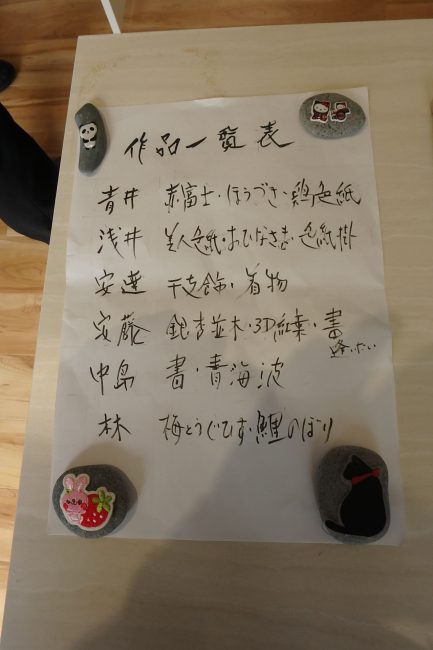 作品一覧表
青井 赤富士・ほうづき・鶏色紙
浅井 美人色紙・おひなさま・色紙掛
安達 干支飾・着物
安藤 銀杏並木・3D紅葉・書
逢いたい
中島 書・青海波
林 梅とうぐひす・鯉のぼり